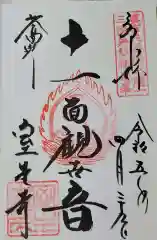 令和五年
四月
十一面観世音
奉拝
室生寺